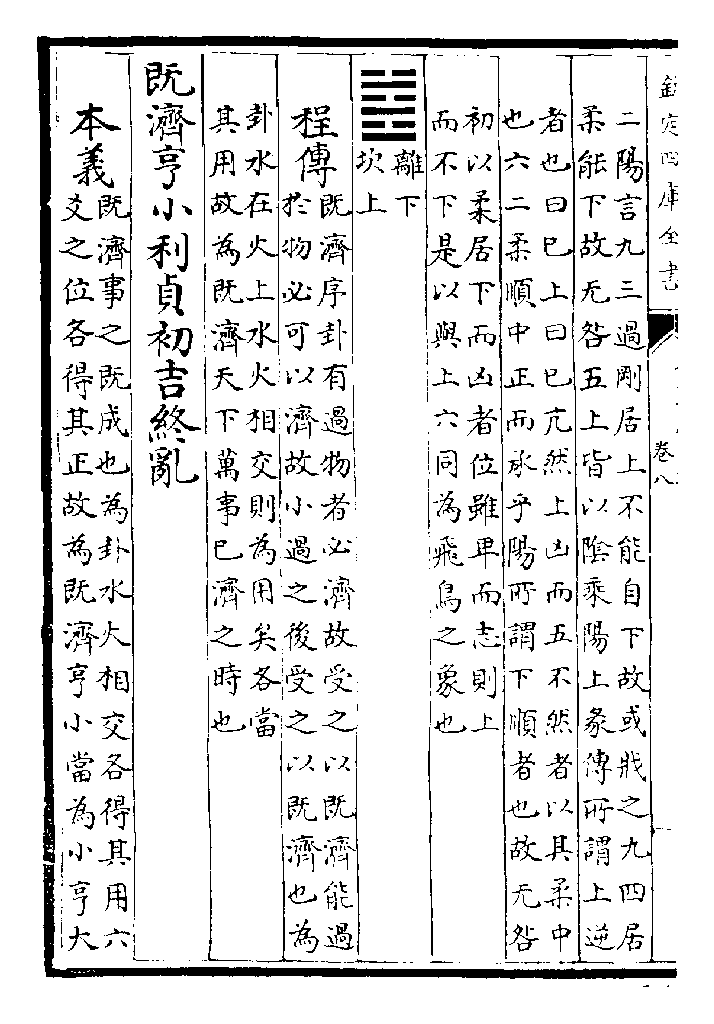 欽定四庫全書
卷八
二陽言九三過剛居上不能自下故或戕之九四居
柔能下故无咎五上皆以陰乘陽上彖傳所謂上逆
者也曰已上曰已亢然上凶而五不然者以其柔中
也六二柔順中正而承乎陽所謂下順者也故无咎
初以柔居下而凶者位雖卑而志則上
而不下是以與上六同為飛鳥之象也
離下
坎上
程傳
既濟序卦有過物者必濟故受之以既濟能過
於物必可以濟故小過之後受之以既濟也為
卦水在火上水火相交則為用矣各當
其用故為既濟天下萬事已濟之時也
既濟亨小利貞初吉終亂
本義
既濟事之既成也為卦水火相交各得其用六
爻之位各得其正故為既濟亨小當為小亨大